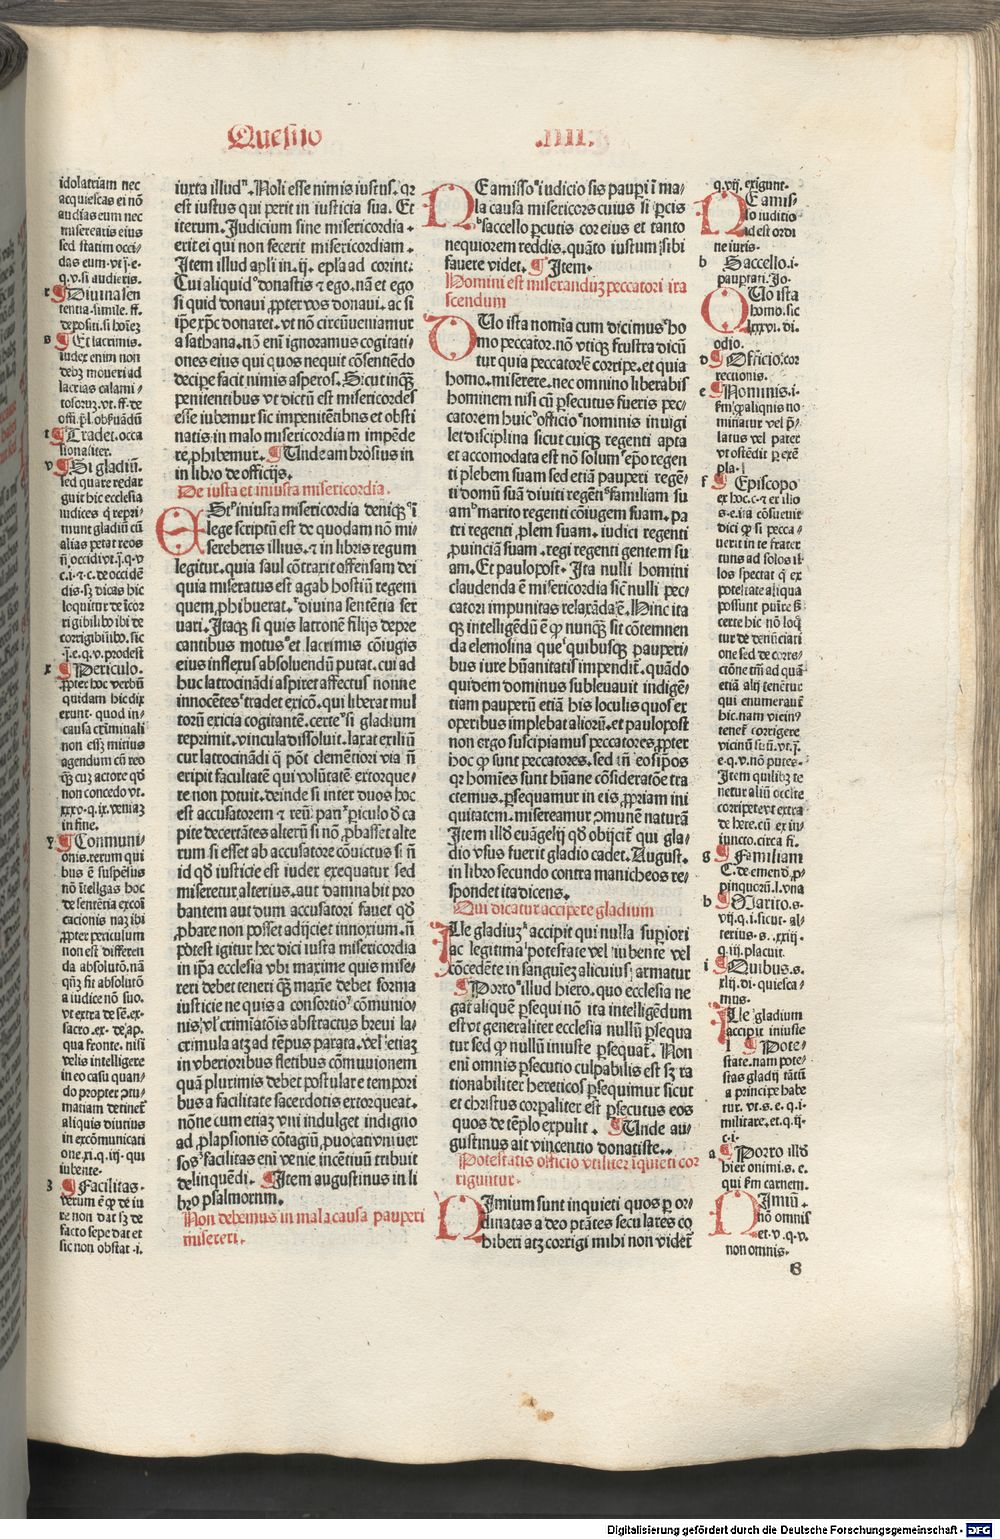 Questio .IIII.
idolatriam nec
acquiescas ei nō
audias eum nec
miserearis eius
sed statim occi/
das eum. vt j. e.
q. v. si audieris.
r ¶ Diuina sen
tentia. simile. ff.
depositi. si hoīez
s ¶ Et lacrimis.
iudex enim non
debz moueri ad
lacrias calami/
tosoruz. vt. ff. de
offi. p̄l. obseruādū
t ¶ Tradet. occa
sionaliter.
v ¶ Si gladiū.
sed quare redar
guit hic ecclesia
iudices q̄ repri/
munt gladiū cū
alias petat reos
n̄ occidi vt. j. q. v
c. i. ⁊ c. de occidē
dis. sz dicas hic
loquitur de icor
rigibili. ibi de
corrigibili. sic
j. e. q. v. prodest
x ¶ Periculo.
ꝓpter hoc verbū
quidam hic dix
erunt. quod in/
causa criminali
non essz mitius
agendum cū reo
qz cuz actore qd
non concedo vt.
xxx. q. ix. veniaz
in fine.
y ¶ Communi/
onis. rerum qui
bus ē suspēsus
nō itellgas hoc
de sentētia excoī
cacionis naz ibi
ꝓpter periculum
non est differen
da absolutō. nā
qn̄qz sit absolutō
a iudice nō suo.
vt extra de sē. ex.
sacro. ex. de ap.
qua fronte. nisi
velis intelligere
in eo casu quan/
do propter ꝯtu/
matiam detinet
aliquis diutius
in excōmunicati
one. xi. q. iij. qui
iubente.
z ¶ Facilitas.
verum ē qꝫ de iu
re non dat sz de
facto sepe dat et
sic non obstat. i.
iuxta illud. Noli esse nimis iustus. qr
est iustus qui perit in iusticia sua. Et
iterum. Judicium sine misericordia.
erit ei qui non fecerit misericordiam.
Item illud apli in. ij. epla ad corint.
Cui aliquid donastis ⁊ ego. nā et ego
si quid donaui ꝓpter vos donaui. ac si
ip̄e xp̄c donaret. vt nō circūueniamur
a sathana. nō enī ignoramus cogitati/
ones eius qui quos nequit cōsentiēdo
decipe facit nimis asperos. Sicut inqz
penitentibus vt dictū est misericordes
esse iubemur sic impenitētibus et obsti
natis in malo misericordiam impēde
re ꝓhibemur. ¶ Unde ambrosius in
in libro de officijs.
De iusta et iniusta misericordia.
Est iniusta misericordia deniqz i
lege scriptū est de quodam nō mi/
sereberis illius. ⁊ in libris regum
legitur. quia saul cōtrarit offensam dei
quia miseratus est agab hostiū regem
quem ꝓhibuerat diuina sentētia ser
uari. Itaqz si quis latronē filijs depre
cantibus motus et lacrimis cōiugis
eius inflexus absoluendū putat. cui ad
huc latrocināndi aspiret affectus nonne
innocētes tradet exicō. qui liberat mul
torū exicia cogitantē. certe si gladium
reprimit. vincula dissoluit. laxat exiliū
cur latrocinādi q̄ pōt clemētiori via n̄
eripit facultatē qui volūtatē extorque/
re non potuit. deinde si inter duos hoc
est accusatorem ⁊ reū pari piculo d̄ ca
pite decertātes alterū si nō ꝓbasset alte
rum si esset ab accusatore cōuictus si n̄
id qd iusticie est iudex exequatur sed
miseretur alterius. aut damnabit pro
bantem aut dum accusatori fauet qd
ꝓbare non posset adijciet innoxium. n̄
potest igitur hec dici iusta misericordia
in ip̄a ecclesia vbi maxime quis mise/
reri debet teneri qz maxīe debet forma
iusticie ne quis a consortio cōmunio/
nis vl crimīatōis abstractus breui la/
crimula atz ad tēpus parata. vel etiaz
in vberioribus fletibus cōmunionem
quā plurimis debet postulare tempori
bus a facilitate sacerdotis extorqueat.
nōne cum etiaz vni indulget indigno
ad ꝓlapsionis cōtagiū puocat vniuer
sos facilitas enī venie incētiuū tribuit
delinquēdi. ¶ Item augustinus in li
bro psalmorum.
Non debemus in mala causa pauperi
misereri.
Ne amisso iudicio sis paupi i ma/
la causa misericors cuius si pcis
saccello pcutis cor eius et tanto
nequiorem reddis. quāto iustum sibi
fauere videt. ¶ Item.
Homini est miserandūz peccatori ira
scendum
Duo ista nomīa cum dicimus ho
mo peccator. nō vtiqz frustra dicū
tur quia peccator ē corripe. et quia
homo. miserere. nec omnino liberabis
hominem nisi cū psecutus fueris pec/
catorem huic officio nominis inuigi
let disciplina sicut cuiqz regenti apta
et accomodata est nō solum epo regen
ti plebem suam sed etiā pauperi regē/
ti domū suā diuiti regēti familiam su
am marito regenti cōiugem suam. pa
tri regenti ꝓlem suam. iudici regenti
ꝓuinciā suam. regi regenti gentem su
am. Et paulopost. Ita nulli homini
claudenda ē misericordia sic nulli pec/
catori impunitas relaxāda ē. Hinc ita
qz intelligēdū ē ꝙ nunqz sit cōtemnen
da elemosina que quibusqz pauperi/
bus iure hūanitatis impendit. quādo
quidem dominus subleuauit indigē/
tiam pauperū etiā his loculis quos ex
operibus implebat aliorū. et paulopost
non ergo suscipiamus peccatores ꝓpter
hoc ꝙ sunt peccatores. sed tn̄ eos ip̄os
qr homīes sunt hūane cōsideratōe tra
ctemus. psequamur in eis ꝓpriam ini
quitatem. misereamur ꝯmunē naturā
Item illd euāgelij qd obijcit qui gla/
dio vsus fuerit gladio cadet. August.
in libro secundo contra manicheos re/
spondet ita dicens.
Qui dicatur accipere gladium
Ille gladiuz accipit qui nulla supiori
ac legitima potestate vel iubente vel
cōcedēte in sanguinez alicuius armatur
¶ Porto illud hiero. quo ecclesia ne
gat aliquē psequi nō ita intelligēdum
est vt generaliter ecclesia nullū psequa
tur sed ꝙ nullū iniuste psequat. Non
enī omnis psecutio culpabilis est sz ra
tionabiliter hereticos psequimur sicut
et christus corpaliter est psecutus eos
quos de tēplo expulit. ¶ Unde au/
gustinus ait vincentio donatiste..
Potestatis officio vtiliter iquieti cor
riguntur.
Nimium sunt inquieti quos p or/
dinatas a deo ptātes seculares co
hiberi atz corrigi mihi non videt
q. vij. exigunt.
Ne amis/
so iuditio
id est ordi
ne iuris.
b Saccello. i.
paupari. Jo.
Duo ista
homo. sic
lxxxvi. di.
odio.
d ¶ Officio. cor
rectionis.
e ¶ Nominis. i.
fm ꝙ aliqnis no
minatur vel p̄/
latus vel pater
vt ostēdit p exē
pla.
f ¶ Episcopo
ex hoc. c. ⁊ ex illo
s. e. ita cōsueuit
dici ꝙ si pecca/
uerit in te frater
tuus ad solos il
los spectat q̄ ex
potestate aliqua
possunt puīre s
certe hic nō loq
tur de denūciati
one sed de corre/
ctiōne tm̄ ad quā
etiā alij tenētur
qui enumerant
hic. nam vicinꝰ
tenet corrigere
vicinū suū. vt. j.
e. q. v. nō putes.
Item quilibz te
netur aliū occlte
corripere vt extra
de here. cū ex in/
iuncto. circa fi.
g ¶ Familiam
C. de emend. ꝓ/
pinquorū. l. vna
h ¶ Marito. s.
vij. q. i. sicut. al/
terius. s. xxiij.
q. iij. placuit.
i ¶ Quibus. s.
xlij. di. quiesca/
mus.
Ille gladium
accipit iniuste
l ¶ Pote/
state. nam pote/
stas gladij tātū
a principe habe
tur. vt. s. e. q. i.
militare. et. q. ij.
c. i.
a ¶ Porto illd
hieronimi. s. e.
qui fm carnem.
Nimiū.
nō omnis
et. v. q. v.
non omnis.
G
Digitalisierung gefördert durch die Deutsche Forschungsgemeinschaft - DFG